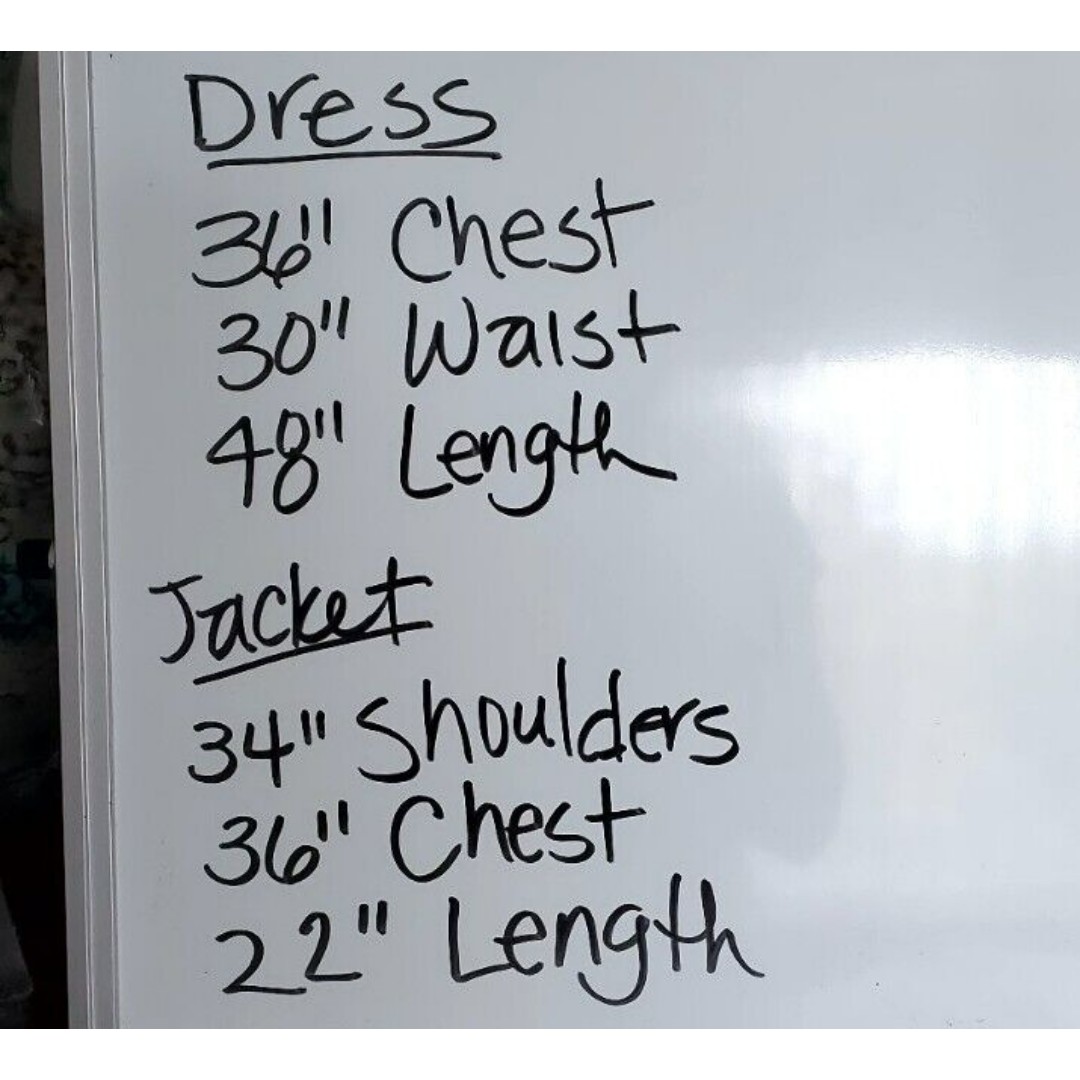 Dress
36" Chest
30" Waist
48" Length
Jacket
34" Shoulders
36" Chest
22" Length